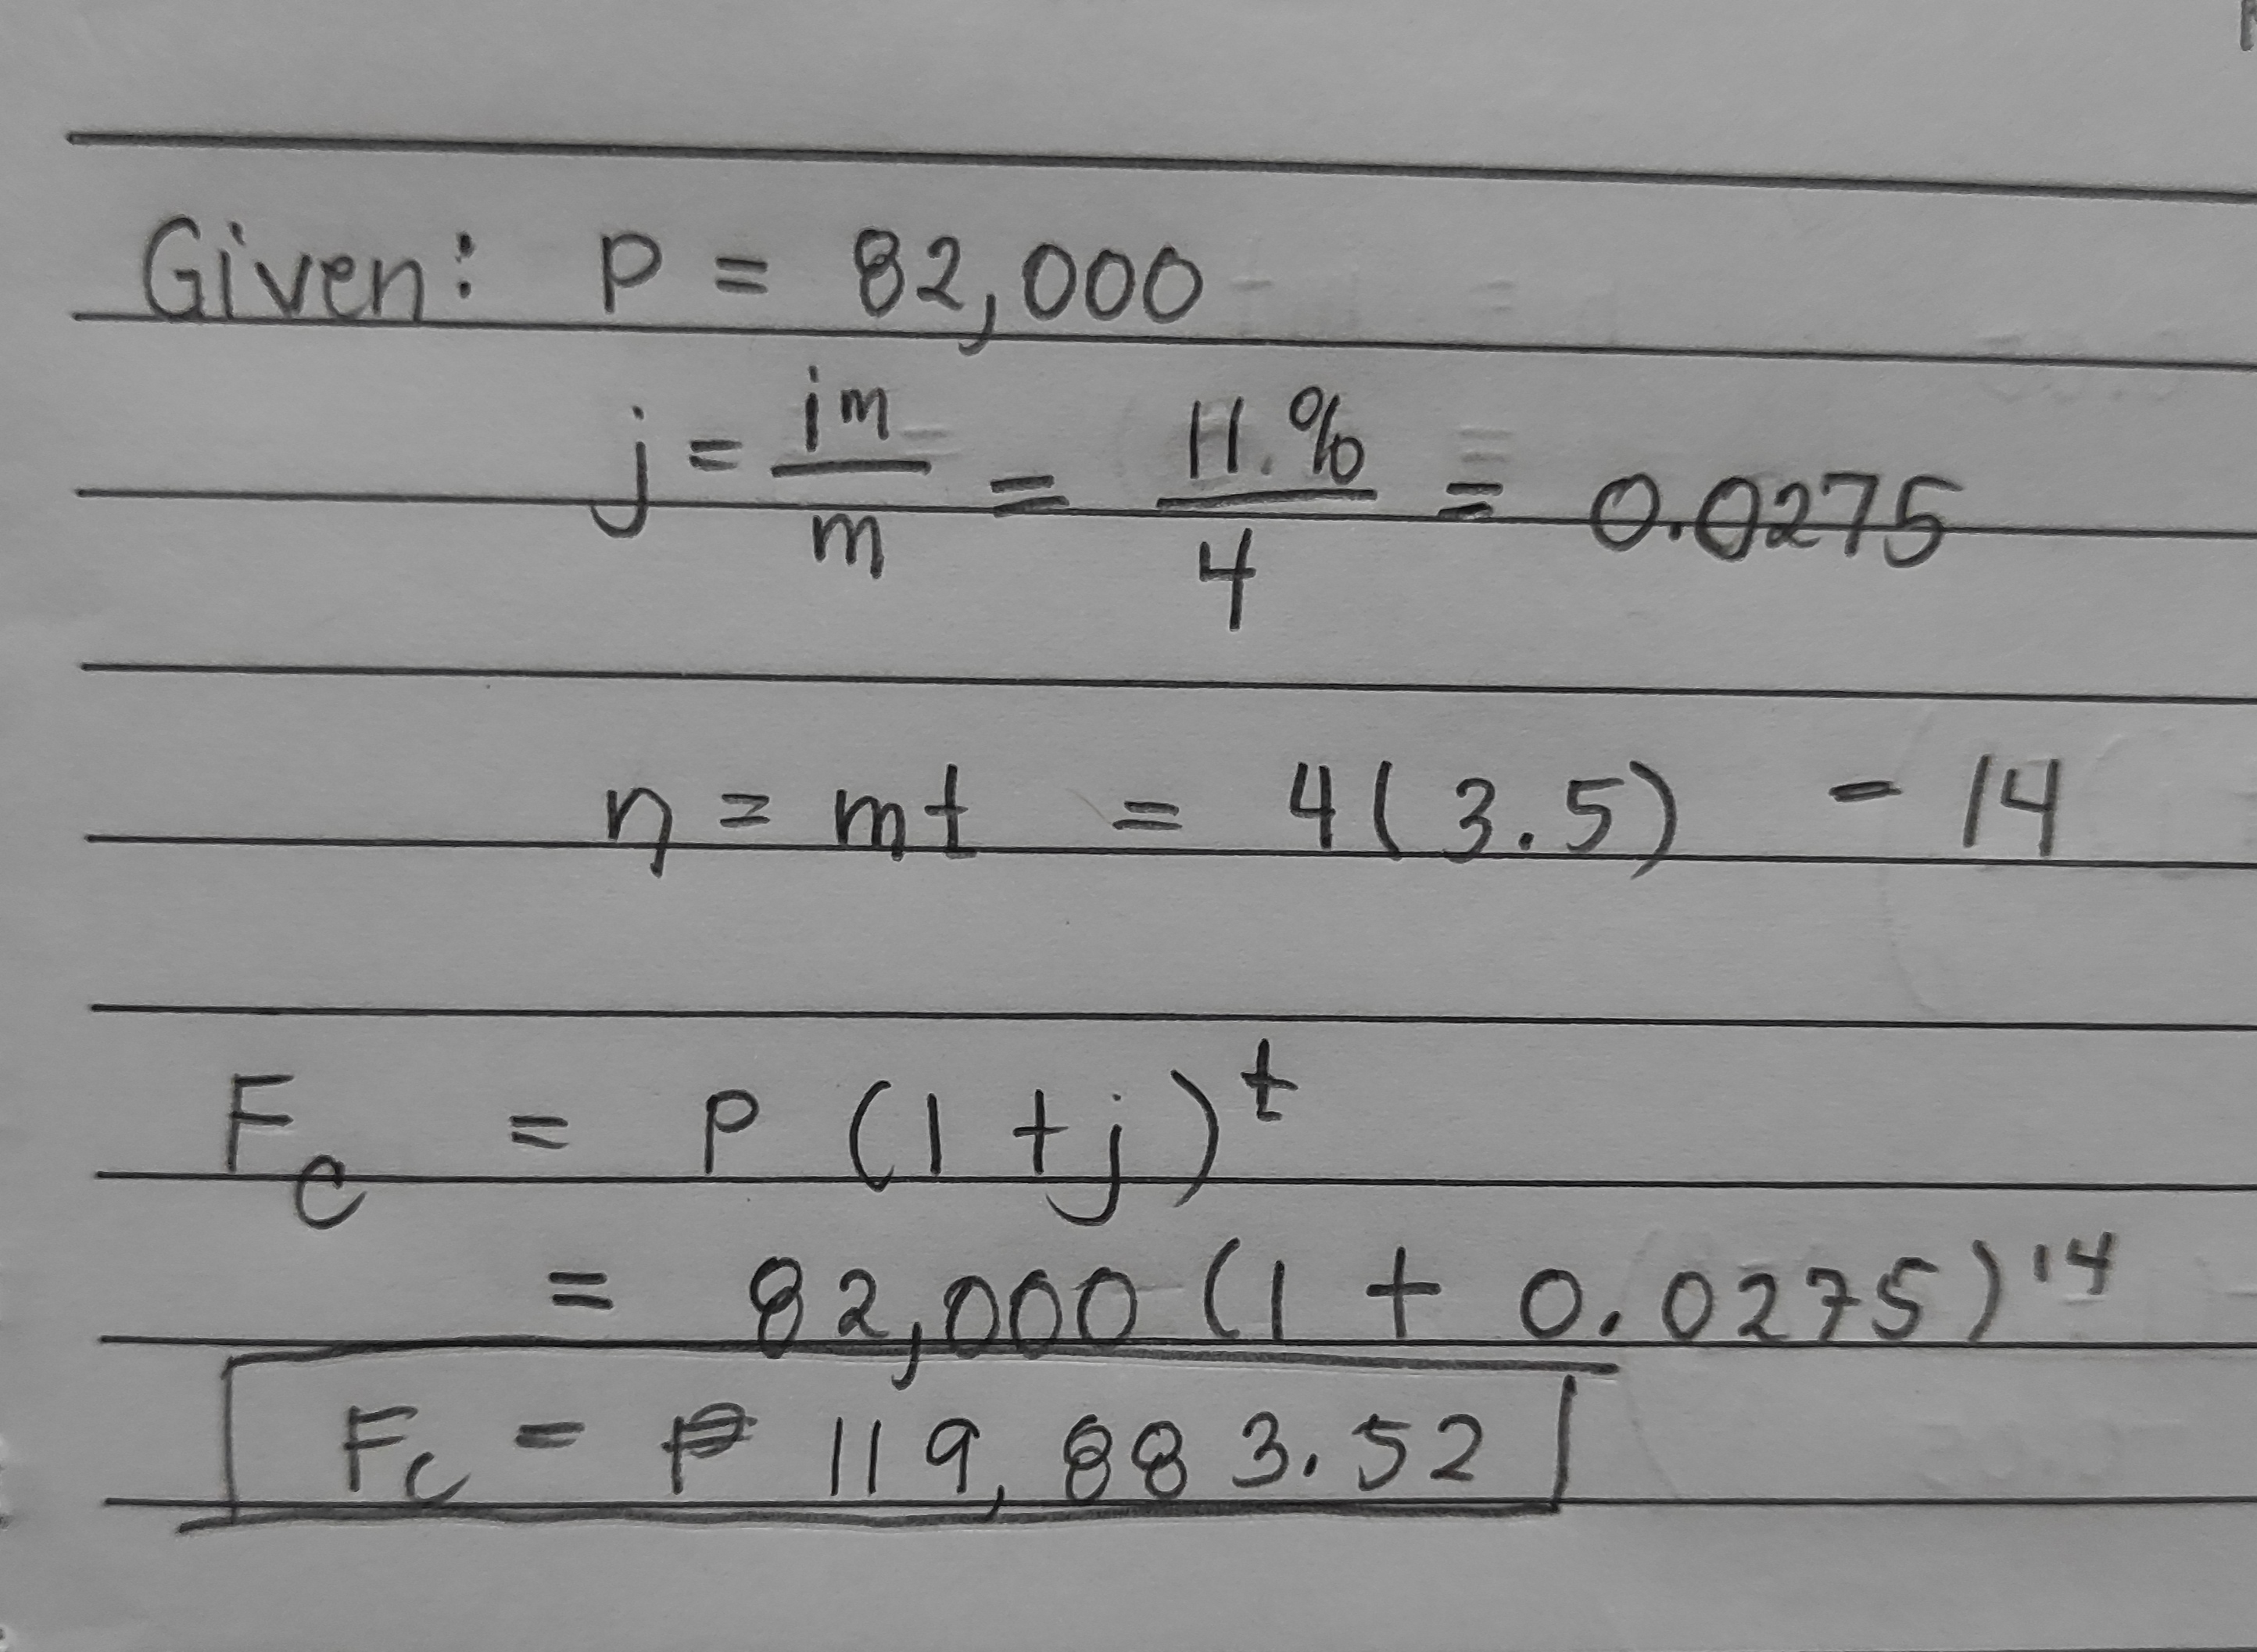 Given: P = 82,000
j = im/m = 11.%/4 = 0.0275
n = mt = 4(3.5) - 14
Fc = P (1 + j)^t
= 82,000 (1 + 0.0275)^14
Fc = ₱ 119,883.52